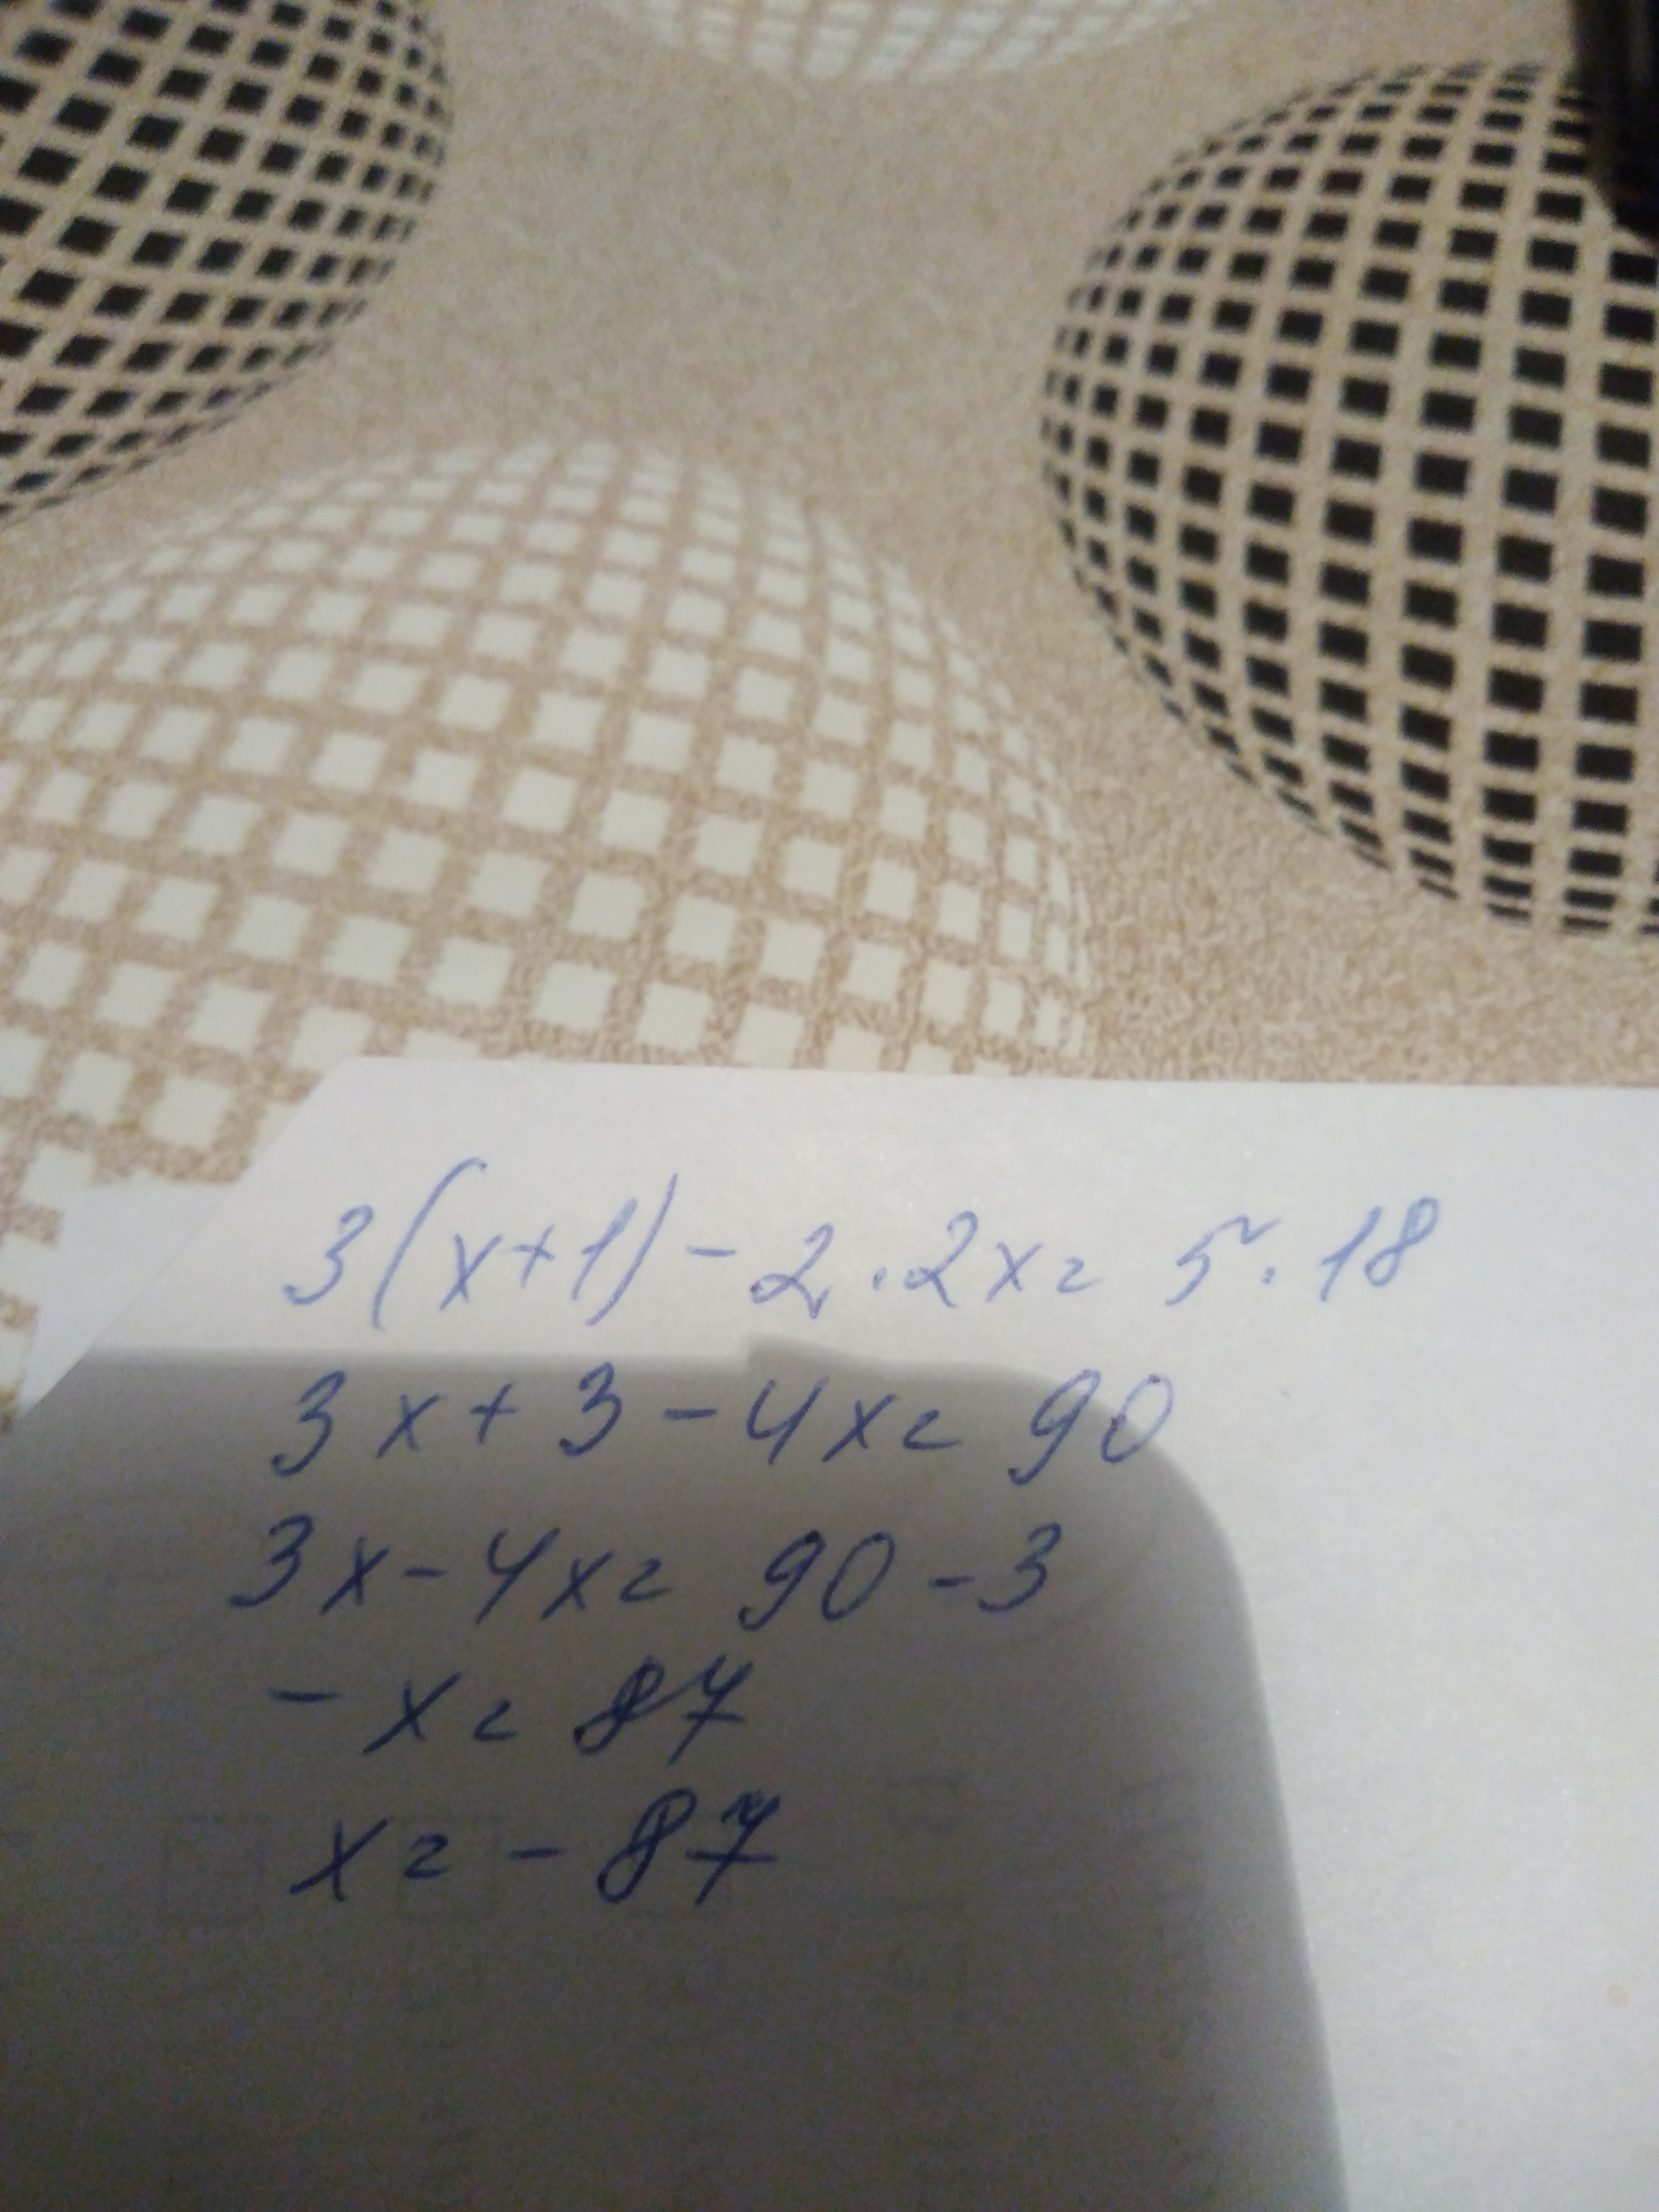 3(x+1)-2·2x= 5·18
3x+3-4x= 90
3x-4x= 90-3
-x= 87
x= -87